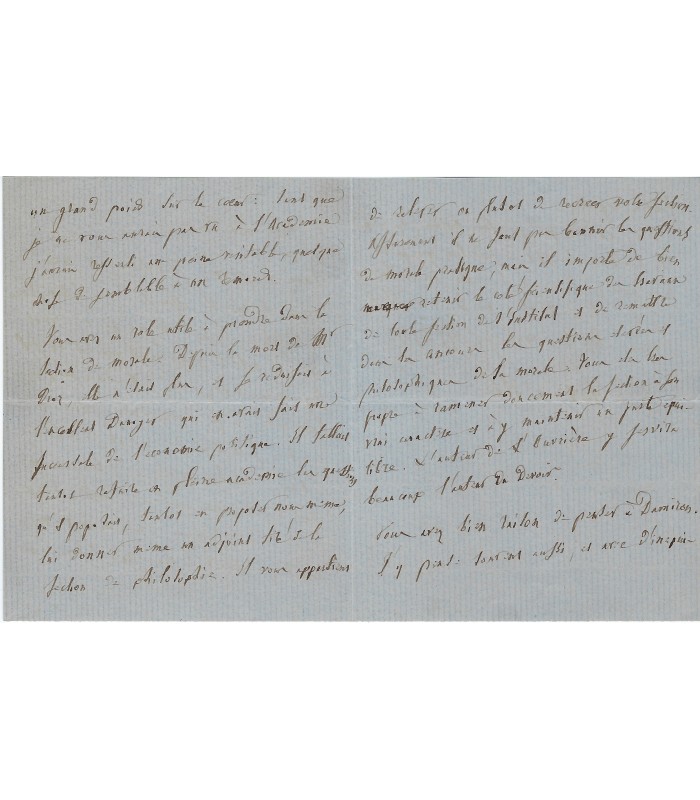 un grand poids sur le cœur: tant que
je ne vous aurais pas vu à l'Académie
j'aurais ressenti une peine véritable, quelque
chose de semblable à un remords.
Vous avez un role utile à prendre dans la
section de morale. Depuis la mort de Mr
Droz, elle n'était plus, et se réduisait à
l'excellent Dunoyer qui en avait fait une
succursale de l'économie politique. Il fallait
tantôt refaire en pleine académie les questions
qu'il proposait, tantôt en proposer nous même,
lui donner même un adjoint tiré de la
section de philosophie. Il vous appartient
de relever ou plutot de recréer votre section.
Assurément il ne faut pas bannir les questions
de morale pratique; mais il importe de bien
retenir le coté scientifique des travaux
de toute section de l'Institut et de remettre
dans la science les questions et
philosophiques de la morale. Vous etes bien
propre à ramener doucement la section à son
vrai caractère et à y maintenir un juste équi-
libre. L'auteur de L'Ouvrière y servira
beaucoup l'auteur du Devoir.
Vous avez bien raison de penser à Damiron.
J'y pense souvent aussi, et avec d'inquié-